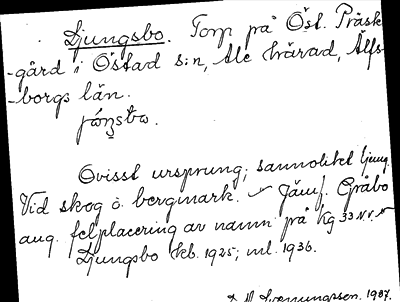 Ljungsbo. Torp på Öst. Präst-
-gård i Östad s:n, Ale härad, Älfs-
-borgs län.
Ovisst ursprung; sannolikt ljung.
Vid skog o. bergmark. Jämf. Gråbo
ang. felplacering av namn på Kg 33 N.V.
Ljungsbo kb. 1925; ml. 1936.
1937.